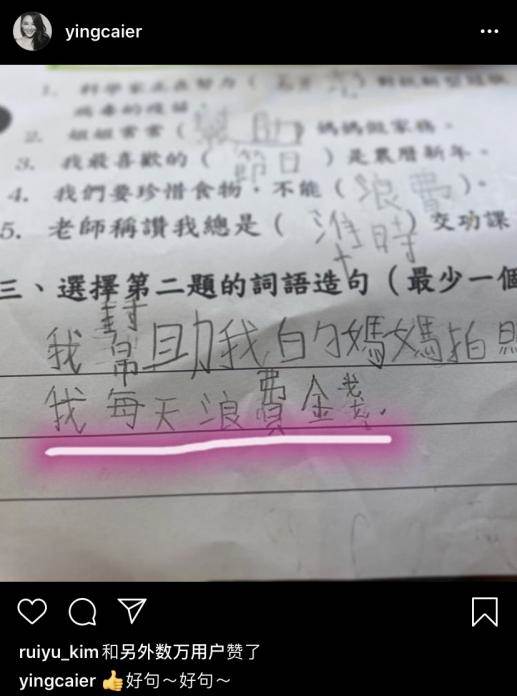 yingcaier
1. 科學家正在努力( 研究 )對抗新型冠狀
病毒的疫苗。
2. 姐姐常常( 幫助 )媽媽做家務。
3. 我最喜歡的( 節日 )是農曆新年。
4. 我們要珍惜食物,不能( 浪費 )。
5. 老師稱讚我總是( 準時 )交功課
三、選擇第二題的詞語造句(最少一個
我幫助我的媽媽拍照
我每天浪費金錢。
ruiyu_kim和另外数万用户赞了
yingcaier 👍好句~好句~